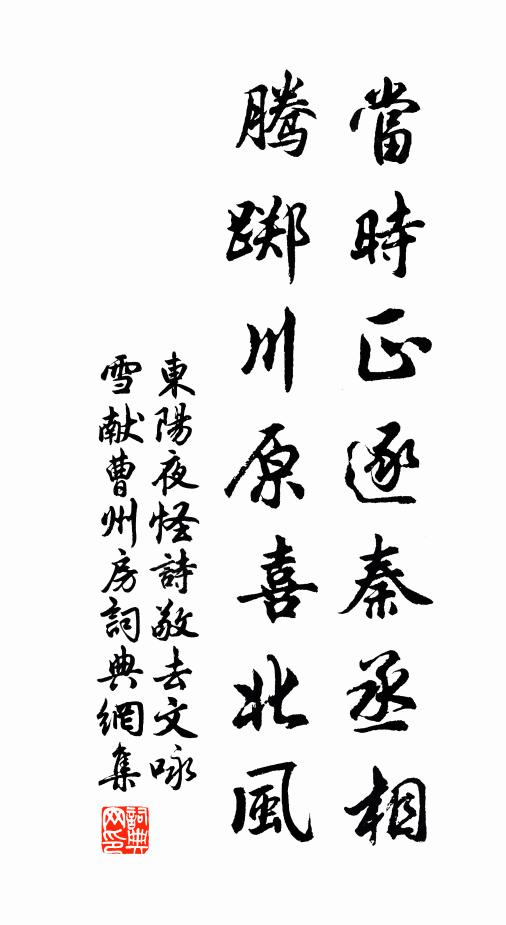 當時正逐秦丞相
腾躑川原喜北風
東陽夜怪詩敬去文咏
雪献曹州房詞典網集
詞典
网印